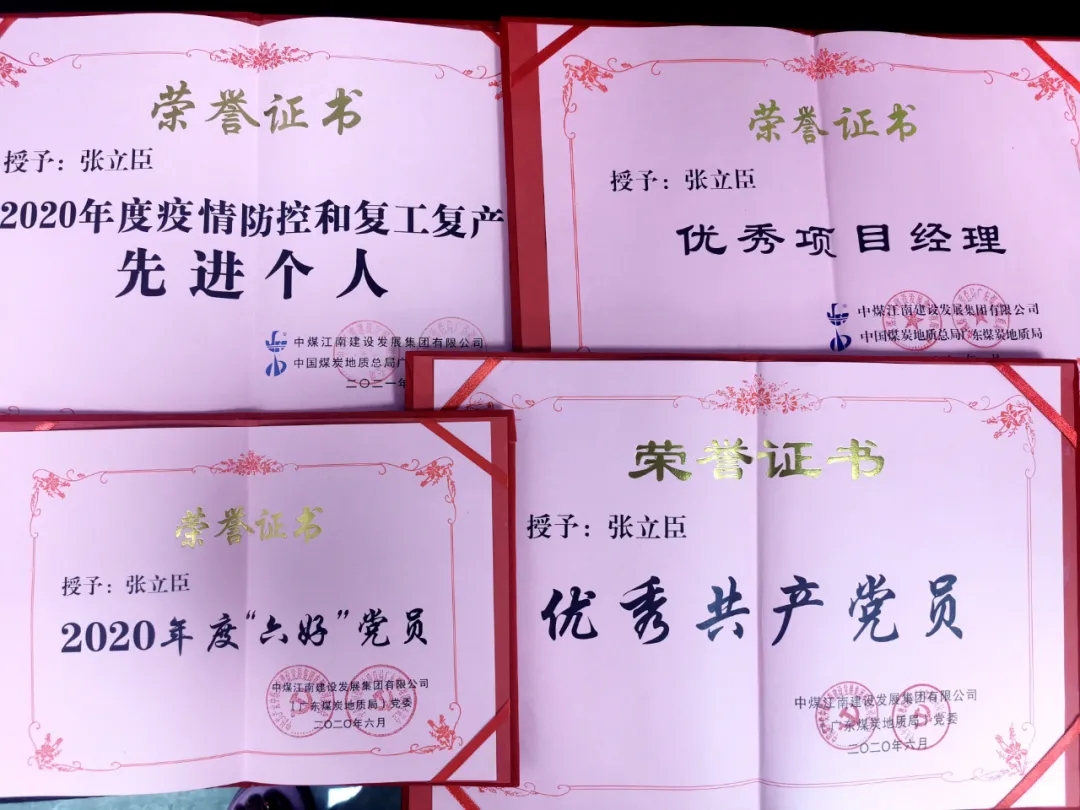 荣誉证书
授予：张立臣
2020年度疫情防控和复工复产
先进个人
中煤江南建设发展集团有限公司
中国煤炭地质总局广
二〇二一年
荣誉证书
授予：张立臣
优秀项目经理
中煤江南建设发展集团有限公司
中国煤炭地质总局广东煤炭地质局
荣誉证书
授予：张立臣
2020年度“六好”党员
中煤江南建设发展集团有限公司
（广东煤炭地质局）党委
二〇二〇年六月
荣誉证书
授予：张立臣
优秀共产党员
中煤江南建设发展集团有限公司
广东煤炭地质局）党委
二〇二〇年六月